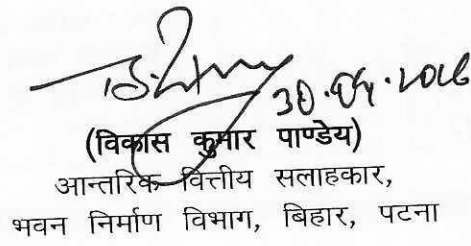 30.04.2016
(विकास कुमार पाण्डेय)
आन्तरिक वित्तीय सलाहकार,
भवन निर्माण विभाग, बिहार, पटना